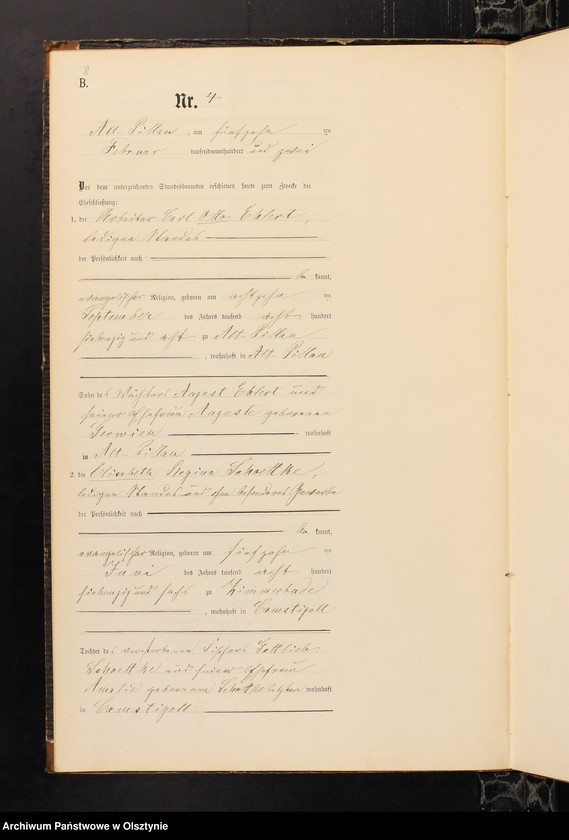 B.
Nr. 4
Alt-Pillau, am fünfzehn ten
Februar tausendneunhundert und zwei
Vor dem unterzeichneten Standesbeamten erschienen heute zum Zwecke der
Eheschließung:
1. der Arbeiter Carl Otto Ehlert,
ledigen Standes
der Persönlichkeit nach
be kannt,
evangelischer Religion, geboren am achtzehn ten
September des Jahres tausend acht hundert
siebenzig und acht zu Alt-Pillau
, wohnhaft in Alt-Pillau
Sohn des Wächters August Ehlert und
seiner Ehefrau Auguste geborenen
wohnhaft
in Alt-Pillau
2. die Elisabeth Regina Schoettke,
ledigen Standes und ohne besonderes Gewerbe
der Persönlichkeit nach
be kannt,
evangelischer Religion, geboren am fünfzehn ten
Juni des Jahres tausend acht hundert
siebenzig und sechs zu Zimmerbude
, wohnhaft in Camstigall
Tochter des verstorbenen Fischers Gottlieb
Schoettke und seiner Ehefrau
Amalie geborenen wohnhaft
in Camstigall
Archiwum Państwowe w Olsztynie